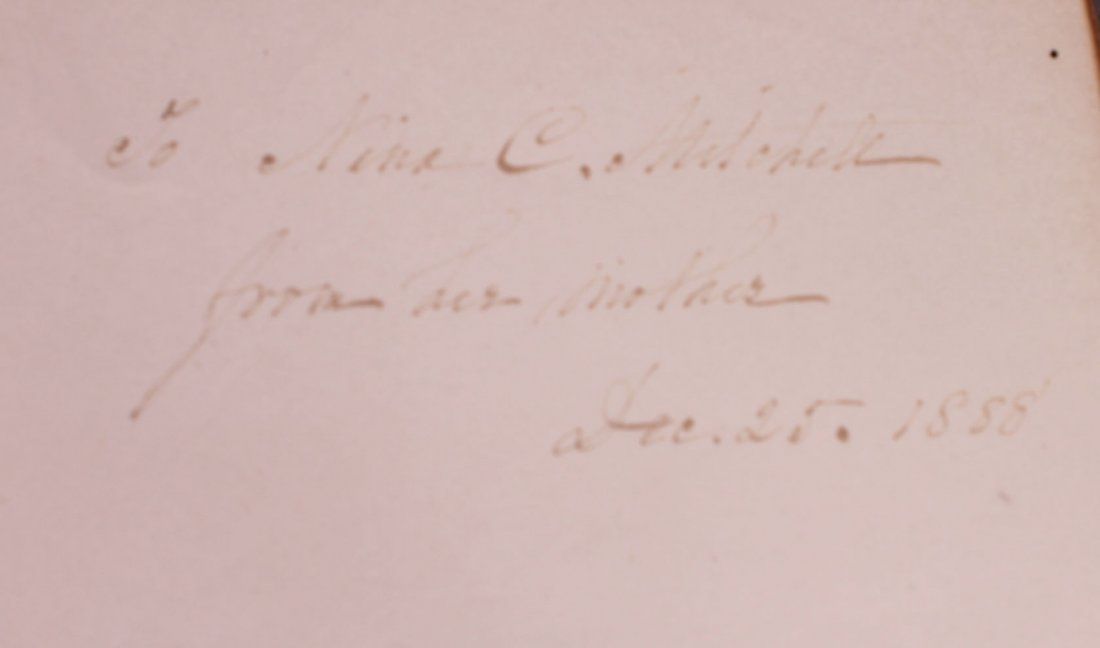 To Nina C. Mitchell
from her mother
Dec. 25. 1888